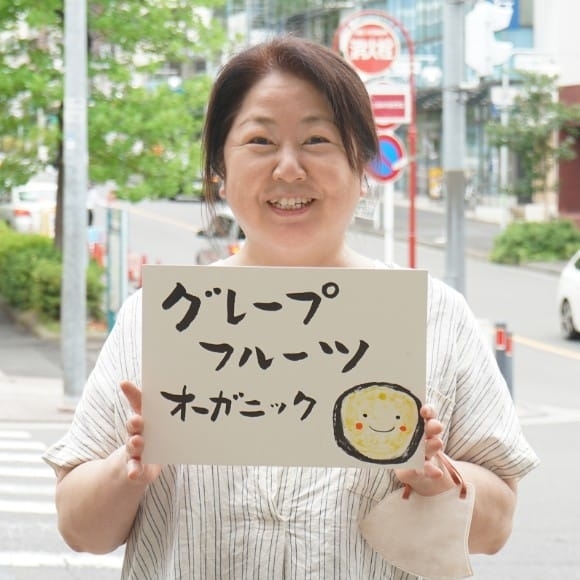 消火栓
グレープ
フルーツ
オーガニック